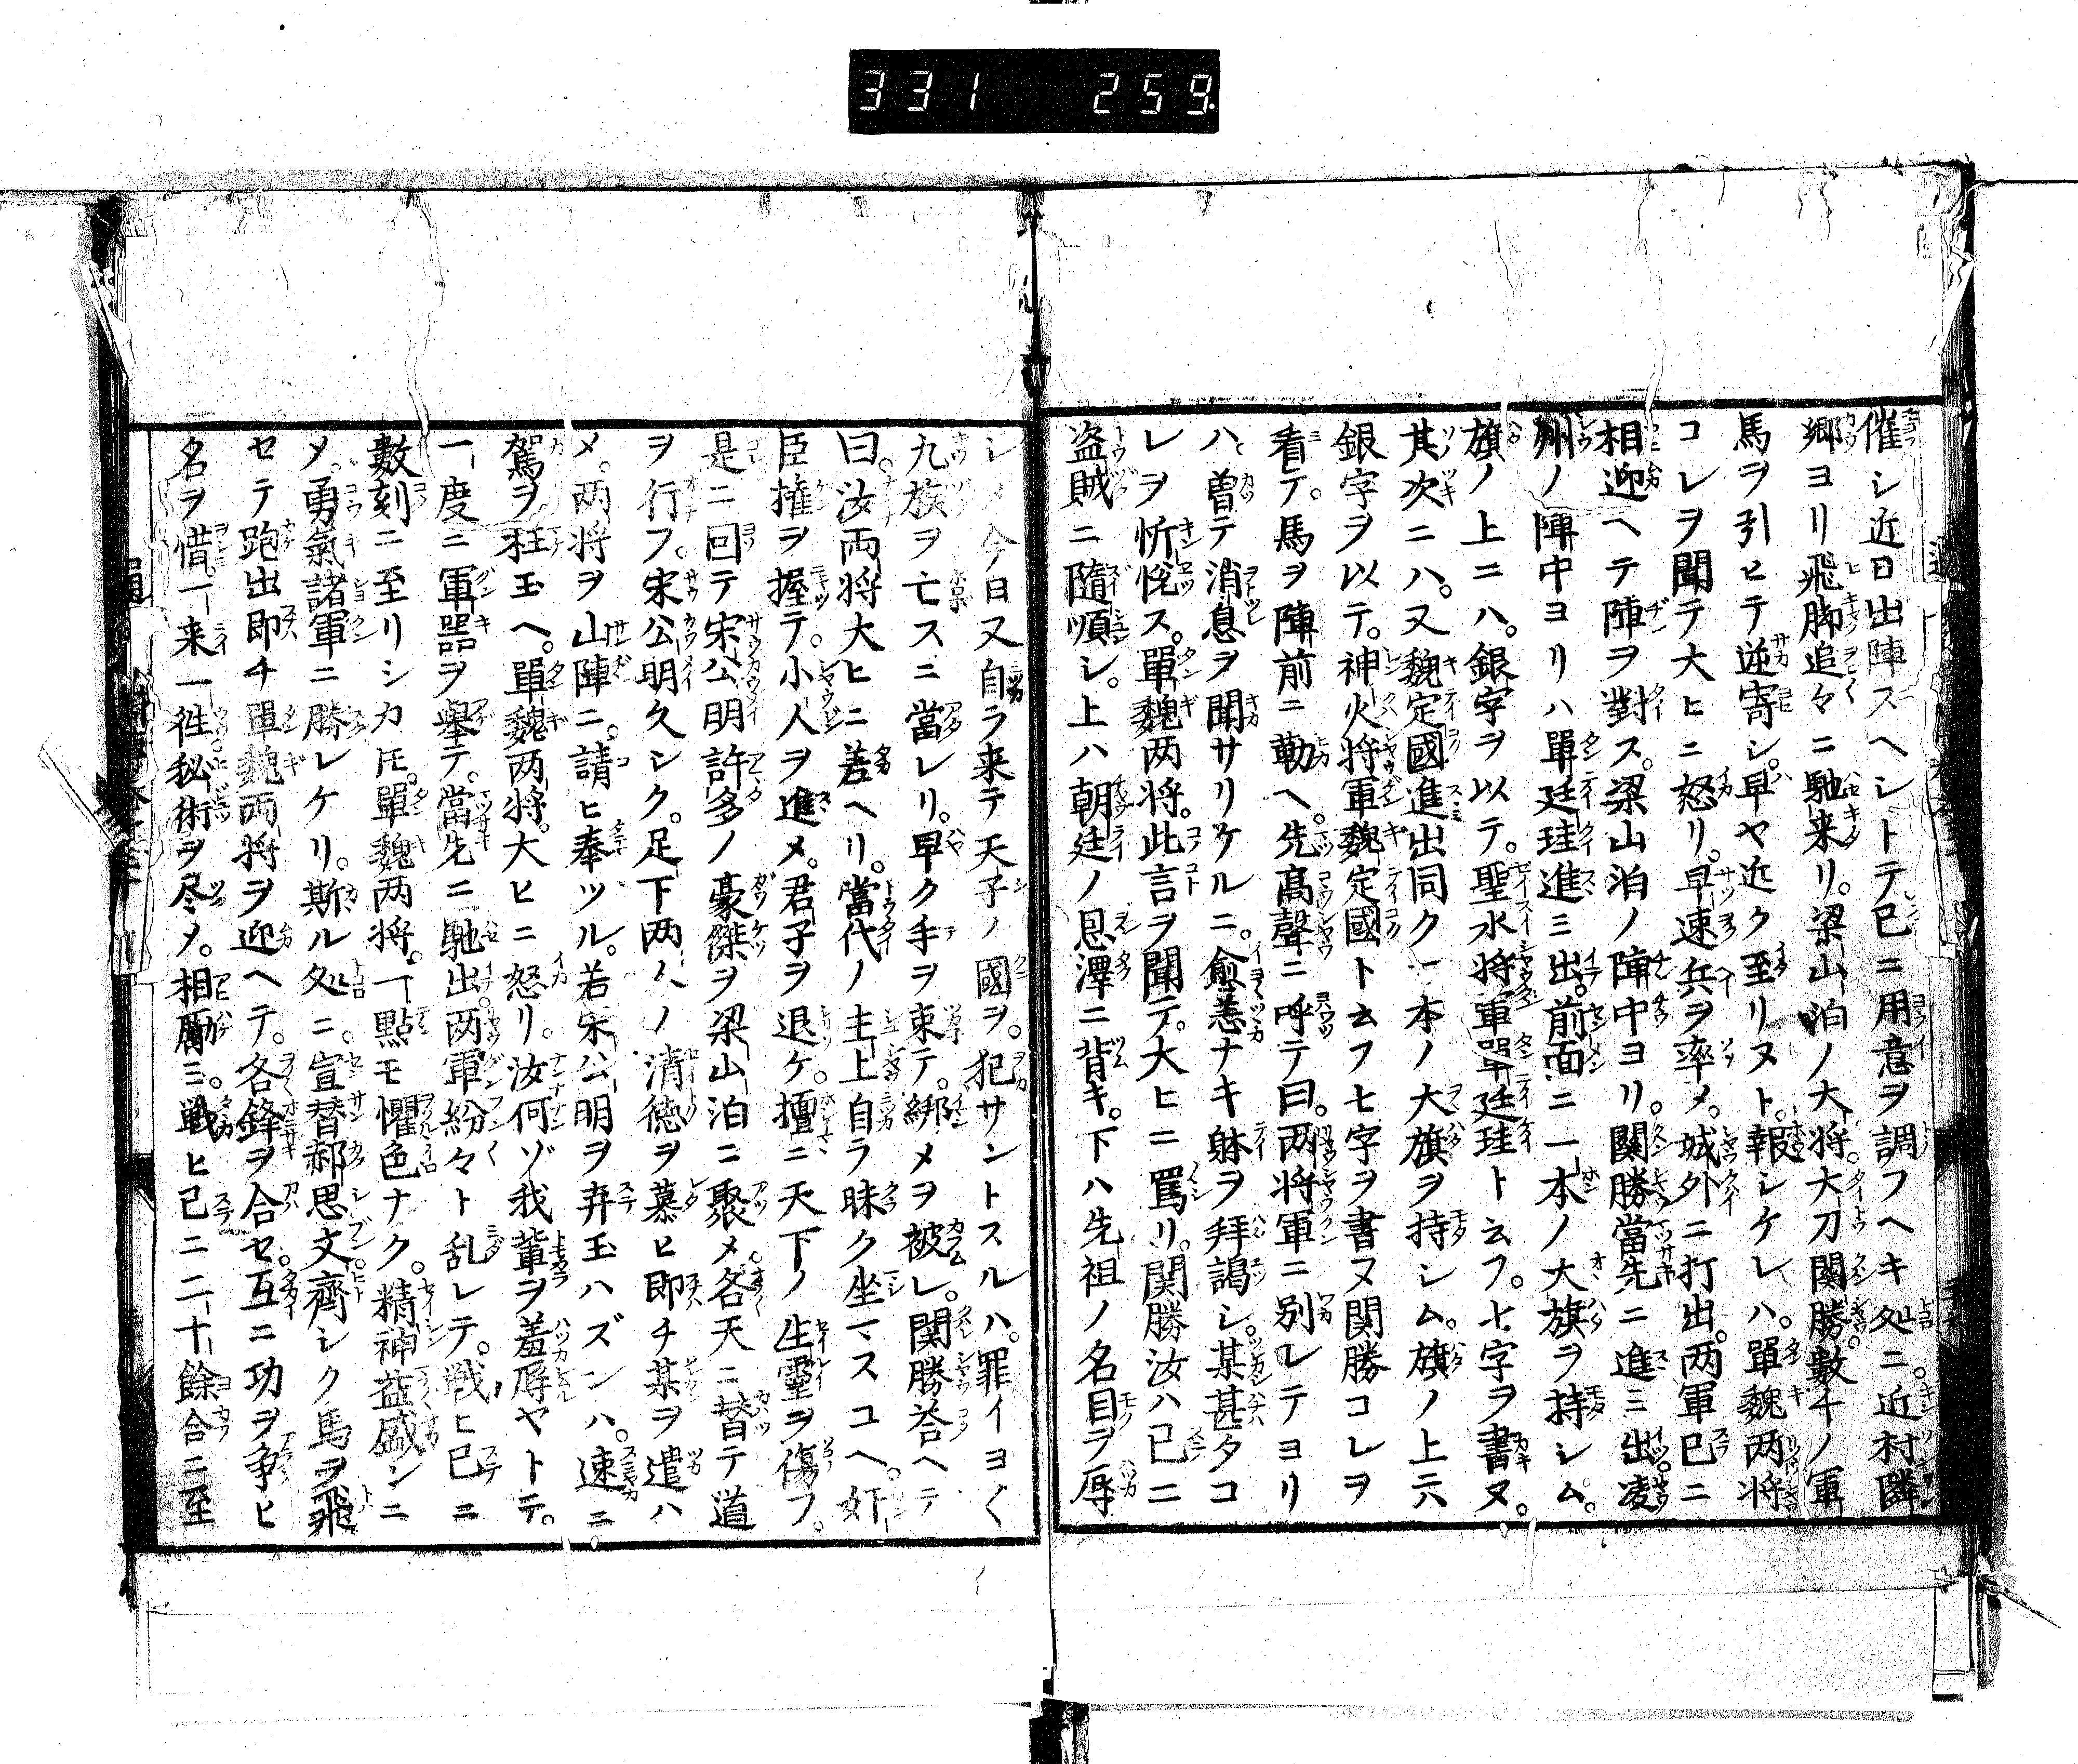 331 259
催シ近日出陣スヘシトテ已ニ用意ヲ調フヘキ処ニ。近村隣
郷ヨリ飛脚追々ニ馳来リ。梁山泊ノ大将。大刀関勝。數千ノ軍
馬ヲ引ヒテ逆寄シ。早ヤ近ク至リヌト。報シケレハ。單魏両将
コレヲ聞テ大ヒニ怒リ。早速兵ヲ率メ。城外ニ打出。両軍已ニ
相迎ヘテ陣ヲ對ス。梁山泊ノ陣中ヨリ。関勝當先ニ進ミ出。凌
州ノ陣中ヨリハ單廷珪進ミ出。前面ニ一本ノ大旗ヲ持シム。
旗ノ上ニハ。銀字ヲ以テ。聖水将軍單廷珪ト云フ。七字ヲ書ヌ。
其次ニハ。又魏定國進出同ク一本ノ大旗ヲ持シム。旗ノ上六
銀字ヲ以テ。神火将軍魏定國ト云フ七字ヲ書ヌ関勝コレヲ
看テ。馬ヲ陣前ニ勒ヘ。先高聲ニ呼テ曰。両将軍ニ別レテヨリ
ハ曽テ消息ヲ聞サリケルニ。愈恙ナキ躰ヲ拜謁シ。某甚タコ
レヲ忻悦ス。單魏両将。此言ヲ聞テ。大ヒニ罵リ。関勝汝ハ已ニ
盗賊ニ隨順シ。上ハ朝廷ノ恩澤ニ背キ。下ハ先祖ノ名目ヲ辱
シメ今日又自ラ来テ天子ノ國ヲ。犯サントスルハ。罪イヨ〱
九族ヲ亡スニ當レリ。早ク手ヲ束テ。綁メヲ被レ。関勝荅ヘテ
曰。汝両将大ヒニ差ヘリ。當代ノ主上自ラ昧ク坐マスコヘ。奸
臣權ヲ握テ。小人ヲ進メ。君子ヲ退ケ。擅ニ天下ノ生靈ヲ傷フ。
是ニ回テ宋公明許多ノ豪傑ヲ梁山泊ニ聚メ。各天ニ替テ道
ヲ行フ。宋公明久シク。足下両人ノ清徳ヲ慕ヒ即チ某ヲ遣ハ
メ。両将ヲ山陣ニ。請ヒ奉ツル。若宋公明ヲ弃玉ハズンハ。速ニ
駕ヲ枉玉ヘ。單魏両将。大ヒニ怒リ。汝何ゾ我輩ヲ羞辱ヤトテ。
一度ニ軍噐ヲ擧テ。當先ニ馳出両軍紛々ト乱レテ。戦ヒ已ニ
數刻ニ至リシカ𪜈。單魏両将。一點モ懼色ナク。精神益盛ンニ
メ。勇氣諸軍ニ勝レケリ。斯ル処ニ。宣替郝思文齊シク馬ヲ飛
セテ跑出即チ單魏両将ヲ迎ヘテ。各鋒ヲ合セ。互ニ功ヲ争ヒ
名ヲ惜一来一徃秘術ヲ尽メ。相勵ミ。戦ヒ已ニ二十餘合ニ至